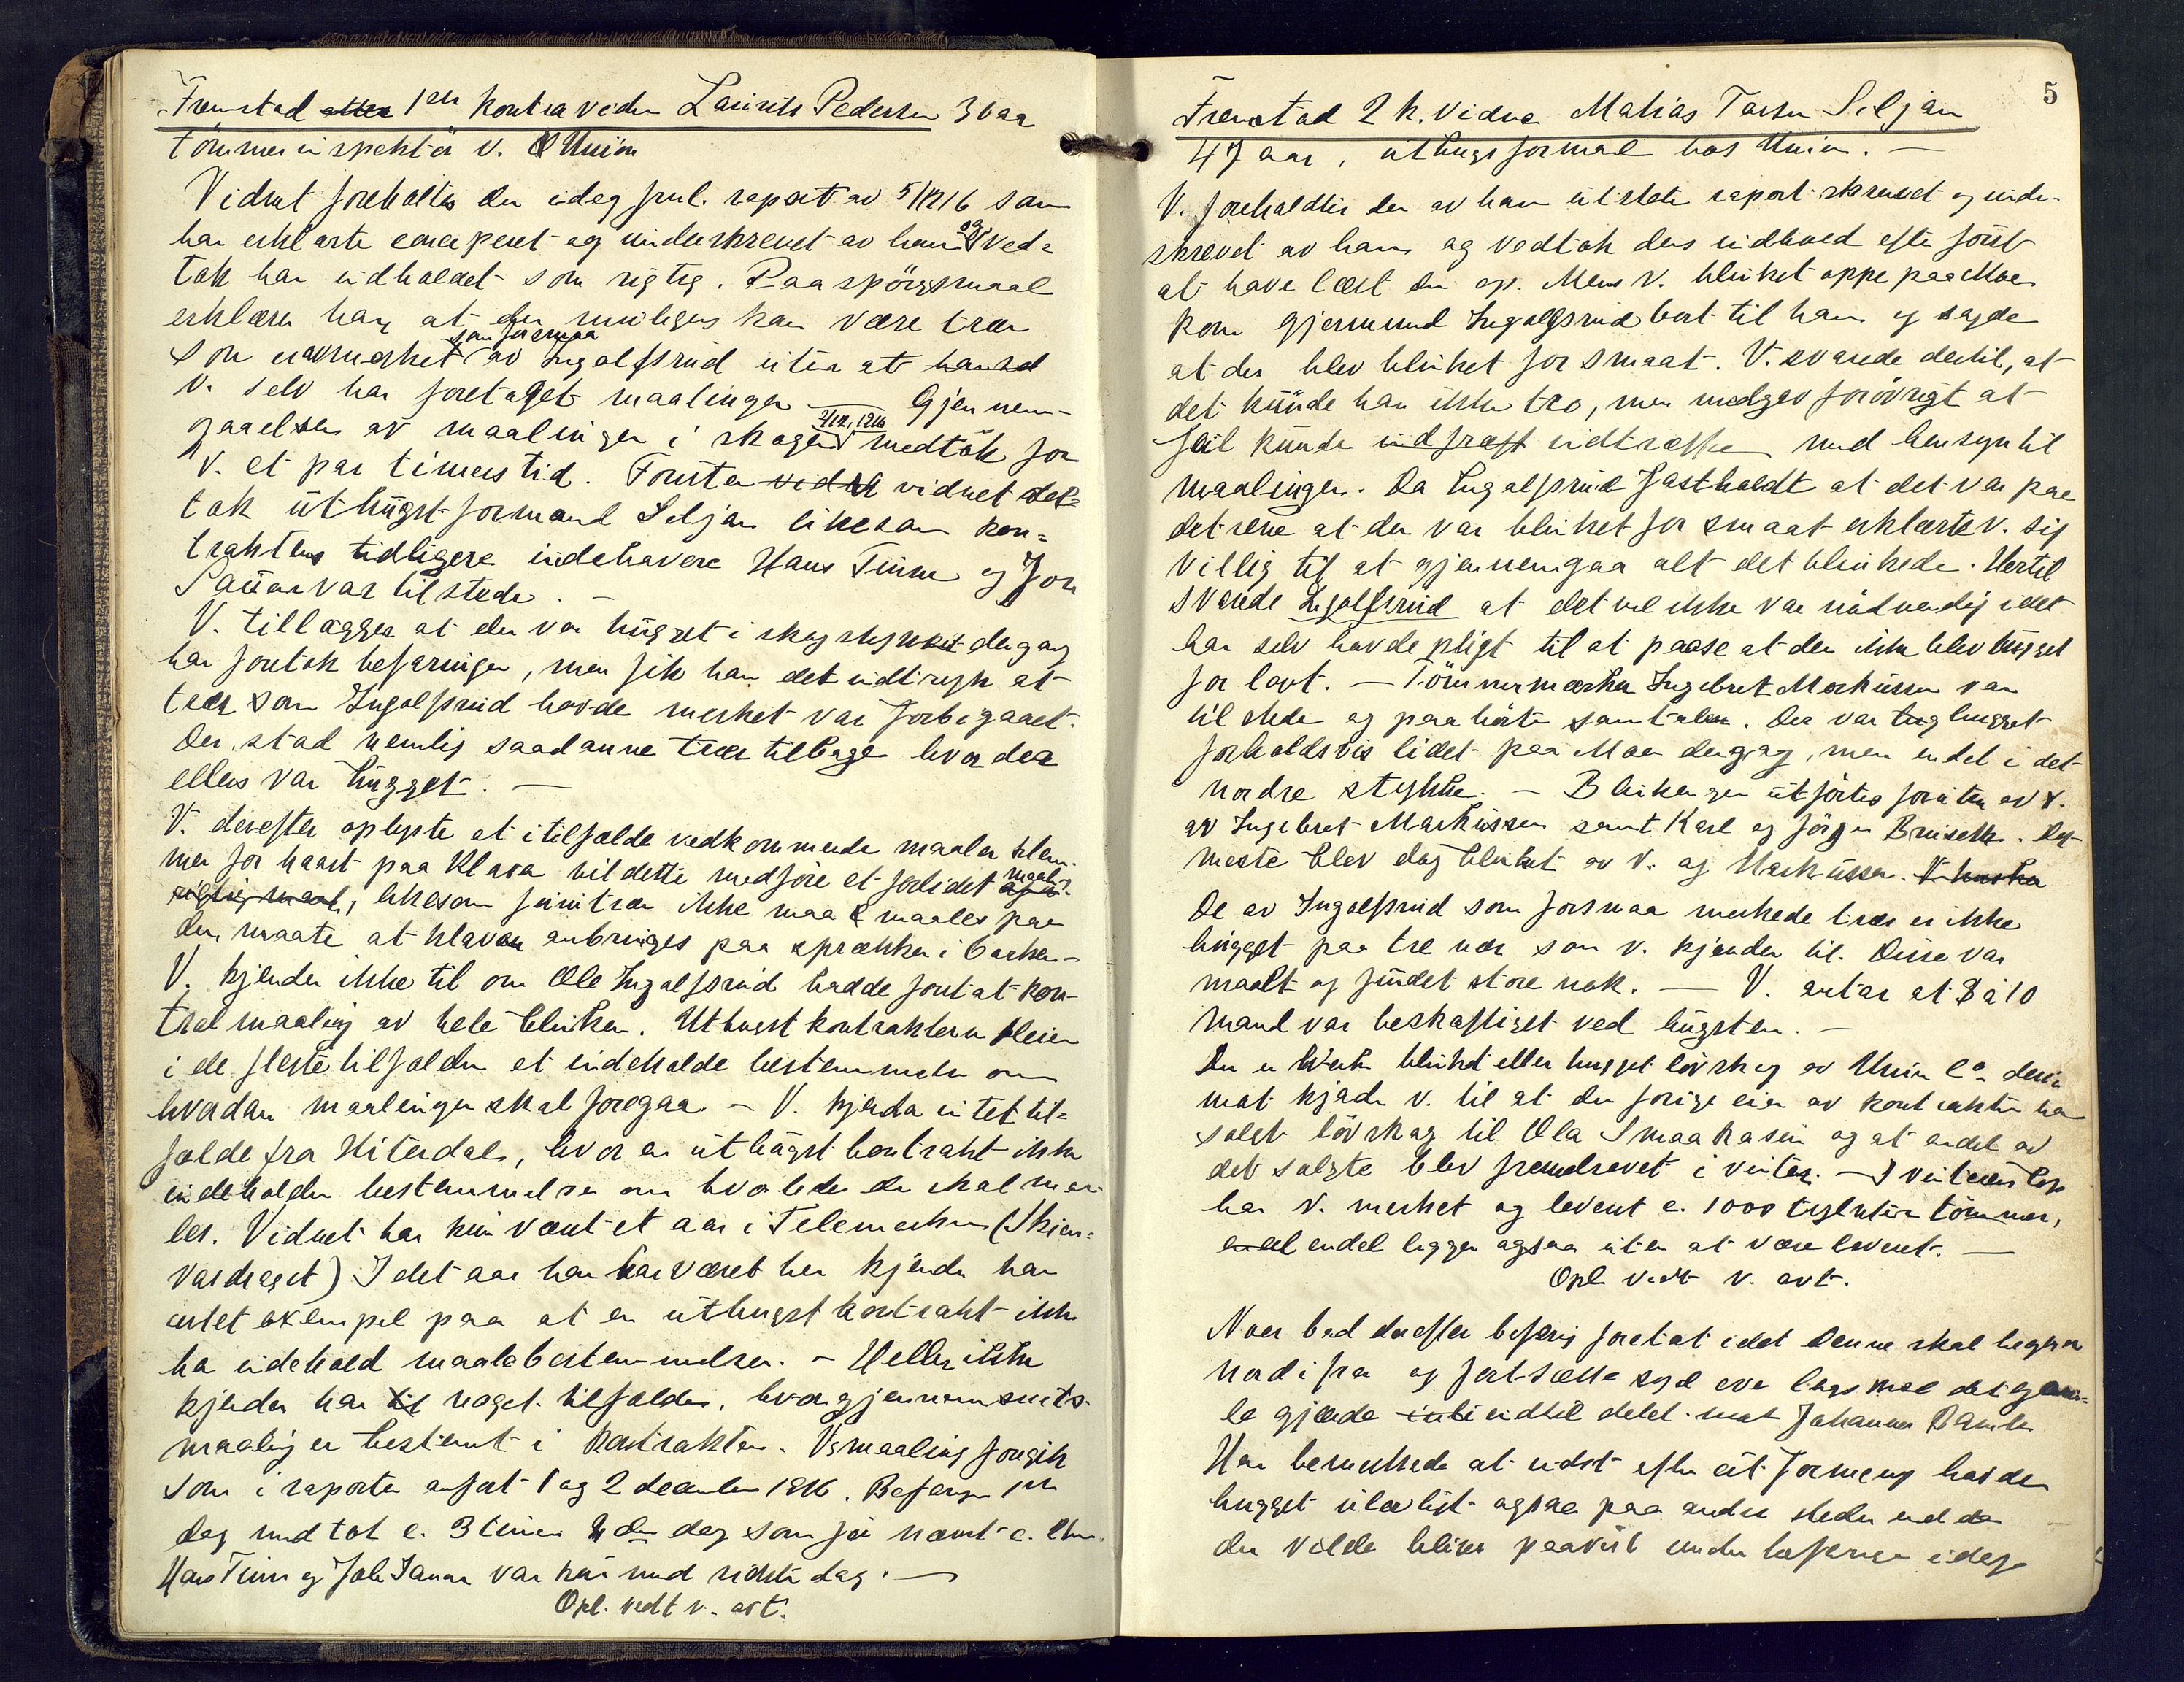 Fremstad 1ste kontravidne Laurits Pedersen 36 aar
tömmerinspektör v. Union
Vidnet foreholdtes den idag frml. raport av 5/12 16 som
han erklærte concipert og underskrevet av ham og ved-
tok han indholdet som rigtig. Paa spörgsmaal
erklærer han, at der muligens kan være trær
som er avmerket som forsmaa av Ingolfsrud uten at
v. selv har foretaget maalingen Gjennem-
gaaelsen av maalingen i skogen 2/12 1216 medtok for
v. et par timers tid. Foruten vidnet del-
tok uthugstformand Seljan likesom kon-
traktens tidligere indehavere Hans Tinne og Jon
Sauar var tilstede. —
V. tillægger at der var hugget i skogstykket dengang
han foretok befaringen, men fik han det indtryk at
trær som Ingolfsrud havde merket var forbigaaet.
Der stod nemlig saadanne trær tilbage hvor der
ellers var hugget. —
V. derefter oplyste at i tilfælde vedkommende maaler klem-
mer for haart paa klaven vil dette medføre et for lidet maal,
likesom furutrær ikke maa maales paa
den maate at klaven anbringes paa sprækker i barken –
V. kjender ikke til om Ole Ingolfsrud hadde foretat kon-
trolmaaling av hele blinken. Uthugstkontrakterne pleier
i de fleste tilfælder at indeholde bestemmelse om
hvordan maalingen skal foregaa – V. kjender intet til-
fælde fra Hiterdal, hvor en uthugst kontrakt ikke
indeholder bestemmelse om hvorledes der skal maa-
les. Vidnet har kun været et aar i Telemarken (Skiens-
vasdraget) I det aar han har været her kjender han
intet exempel paa at en uthugst kontrakt ikke
ha indehold maalebestemmelser. – Heller ikke
kjender han til noget tilfælde, hvor gjennemsnits-
maaling er bestemt i kontrakten. Vs maaling foregik
som i raporten anført 1 og 2 december 1916. Befaringen 1ste
dag medtok c. 3 timer 2den dag som før nævnt c. 2 tim.
Hans Tinne og Jon Sauar var kun med sidste dag. —
Opl. vedt v. avt.
5
Fremstod 2 k. vidne Matias Larsen Seljan
47 aar, uthugsformand hos Union. —
V. foreholdtes den av ham utstedte raport skrevet og under-
skrevet av ham og vedtok dens indhold efter först
at have læst den op. Mens v. blinket oppe paa Moen
kom Gjermund Ingolfsrud bort til ham og sagde
at der blev blinket for smaat. V. svarede dertil, at
det kunde han ikke tro, men medgav forövrigt at
feil kunde indtræffe med hensyn til
maalingen. Da Ingolfsrud fastholdt at det var paa
det rene at der var blinket for smaat erklærte v. sig
villig til at gjennemgaa alt det blinkede. Hertil
svarede Ingolfsrud at det vel ikke var nödvendig idet
han selv havde pligt til at paase at der ikke blev hugget
for lavt. — Tömmermærker Ingebret Markussen var
tilstede og paahörte samtalen. Der var hugget
forholdsvis lidet paa Moen dengang, men endel i det
nordre stykke. – Blinkingen utförtes foruten av v.
av Ingebret Markussen samt Karl og Jörgen Bruseth. Det
meste blev dog blinket av v. og Markussen.
De av Ingolfsrud som forsmaa merkede trær er ikke
hugget paa tre nær som v. kjender til. Disse var
maalt og fundet store nok. — V. antar at 8 á 10
mand var beskjæftiget ved hugsten. —
Der er ikke blinket eller hugget lövskog av Union Co derimot
kjender v. til at den forrige eier av kontrakten har
solgt lövskog til Ola Smaakasin og at endel av
det solgte blev fremdrevet i vinter. — I vinterens löp
har v. merket og levert c. 1000 tylvter tömmer,
endel ligger ogsaa uten at være levert. —
Opl. vedt v. avt.
Noer bad derefter befaring foretat idet denne skal begynne
nordifra og fortsætte syd over langs med det gam-
le gjærde indtil delet mot Johannes
Han bemerkede at indst. efter sit formening havde
hugget ulovlig ogsaa paa andre steder end de
der vilde blive paavist under befaringen idag